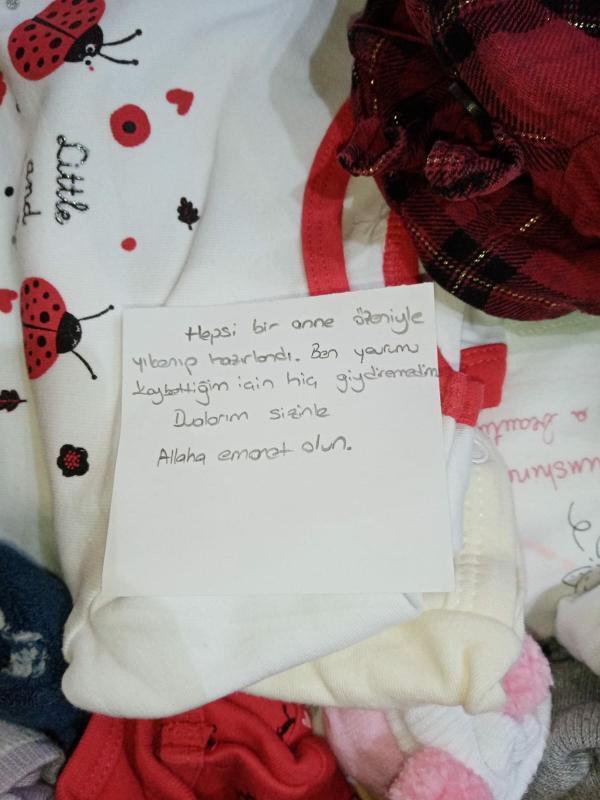 Little
and
Hepsi bir anne özeniyle
yıkanıp hazırlandı. Ben yavrumu
kaybettiğim için hiç giydiremedim
Dualarım sizinle
Allaha emanet olun.
a beautiful
sunshine